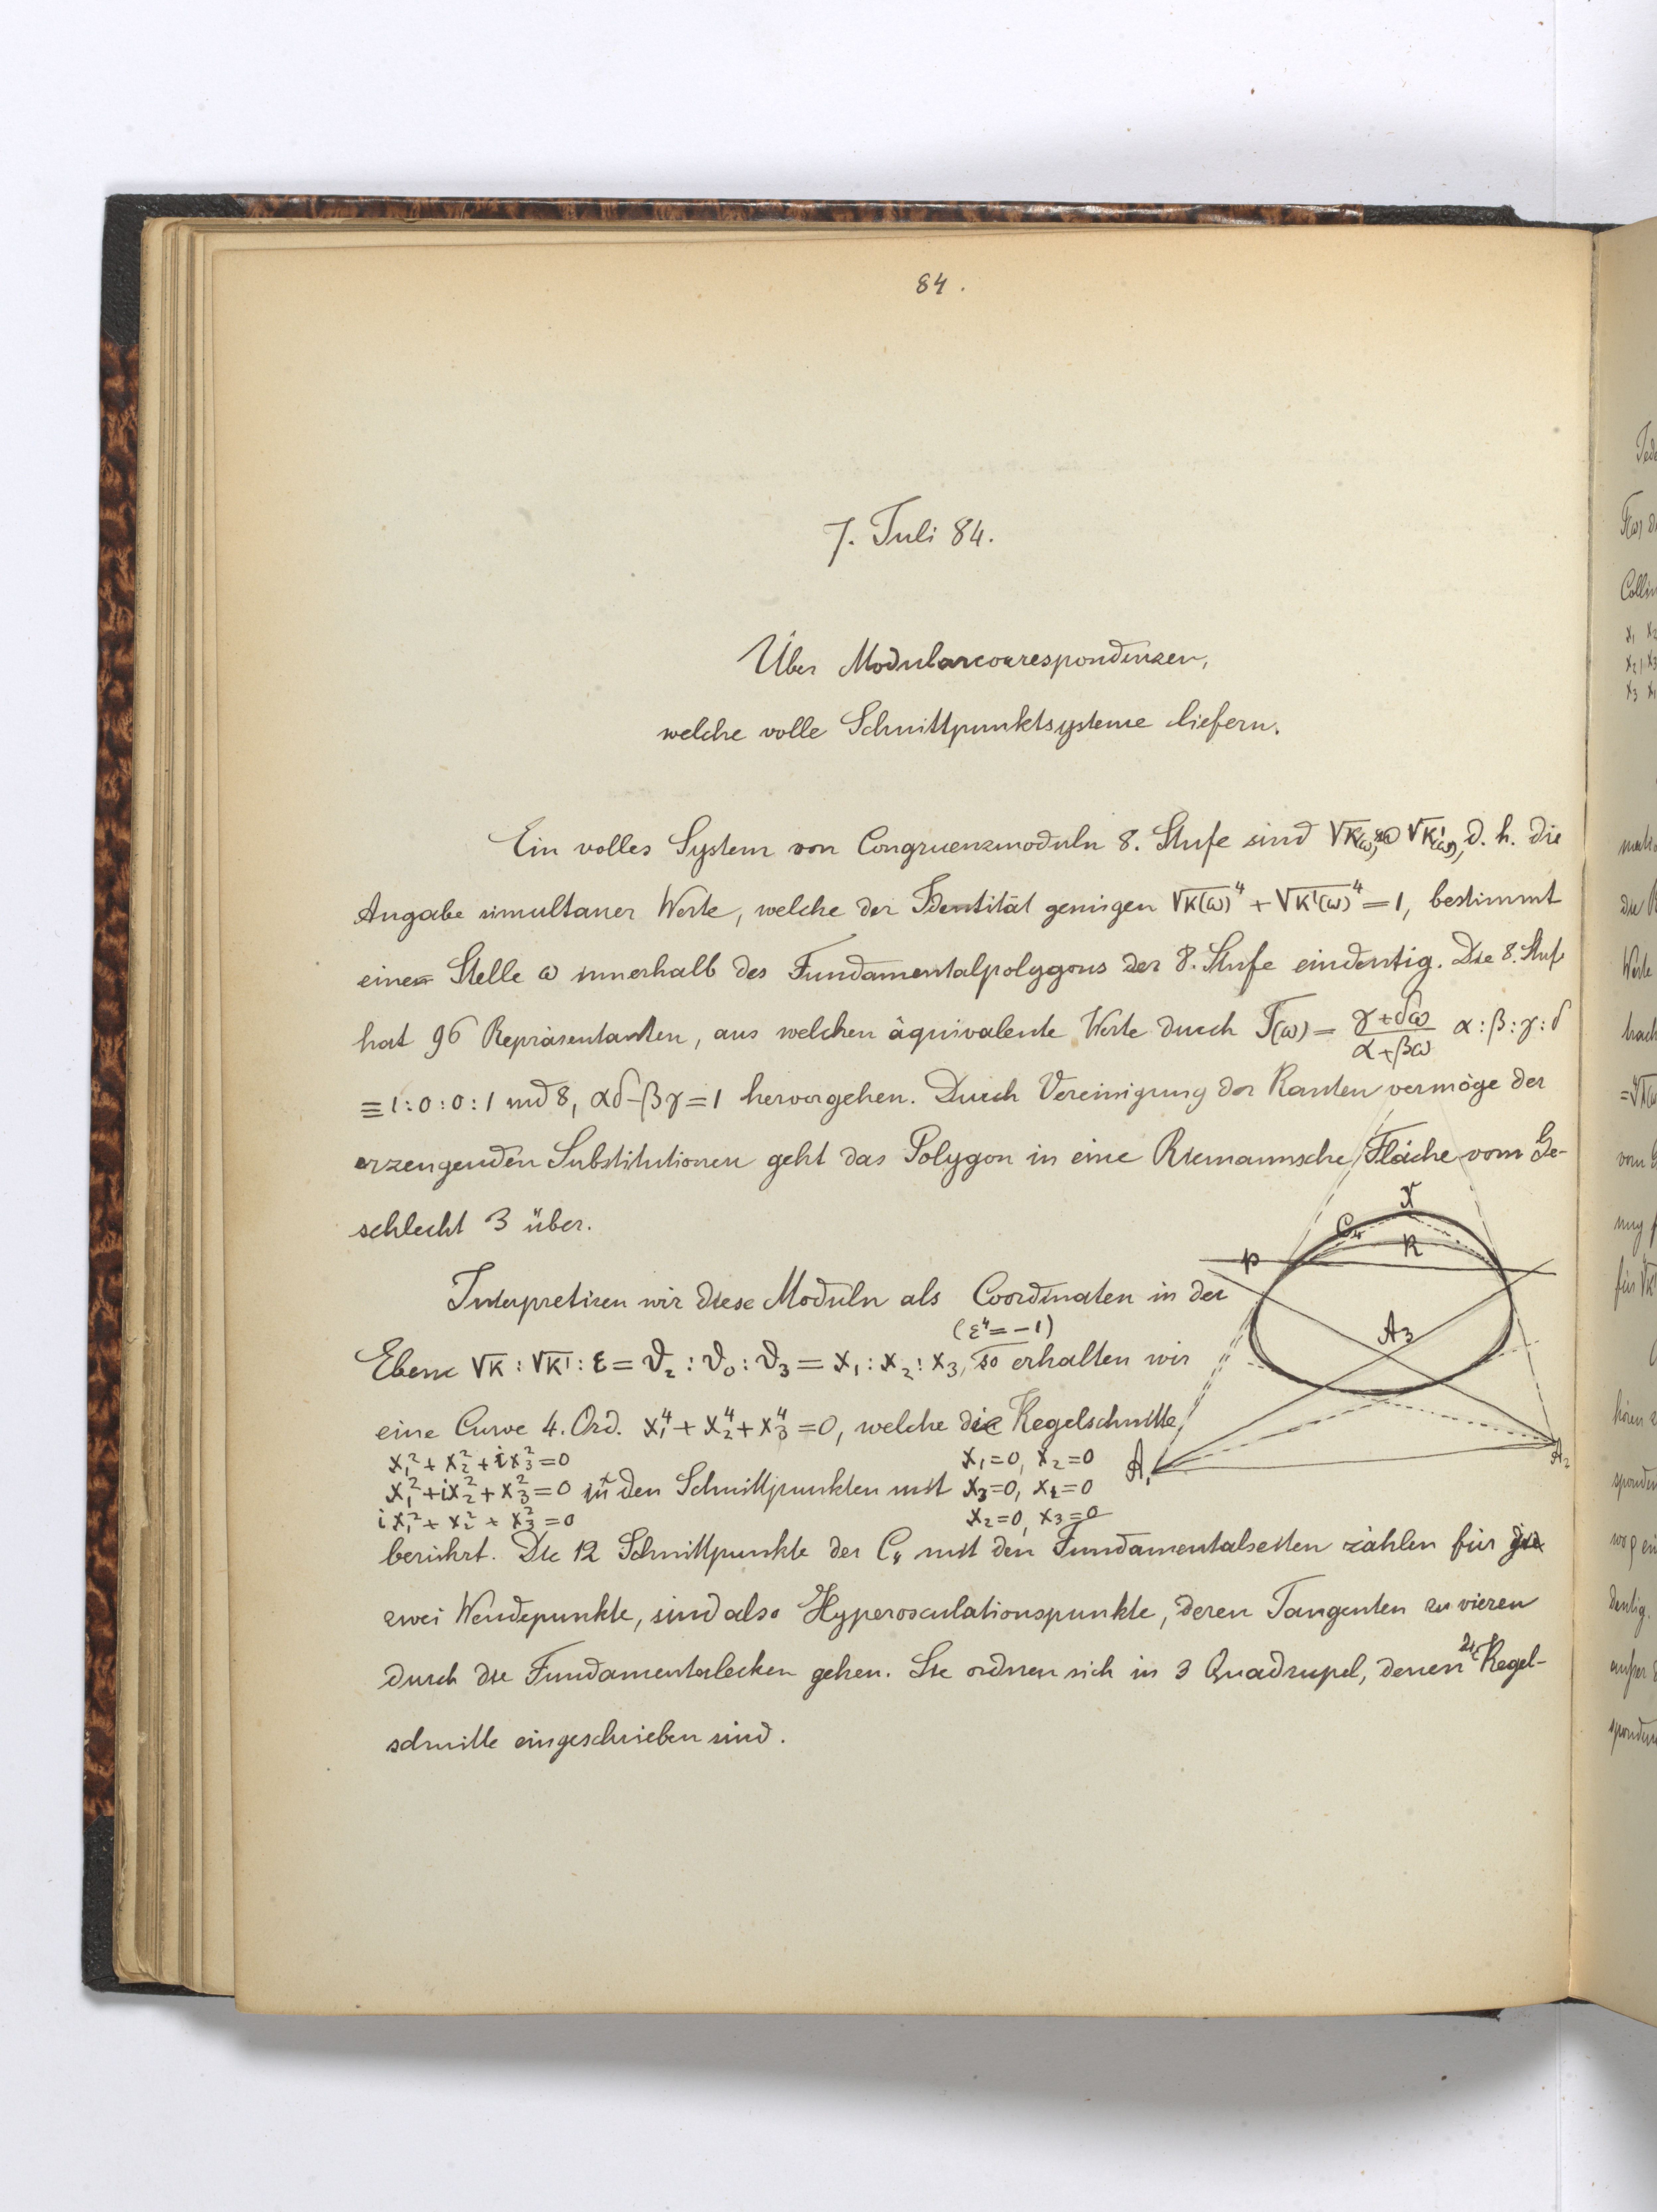 84.
7. Juli 84.
Über Modularcorrespondenzen,
welche volle Schnittpunktsysteme liefern.
Ein volles System von Congruenzmoduln 8. Stufe sind √κ(ω), √κ'(ω), d. h. die
Angabe simultaner Werte, welche der Identität genügen √κ(ω)⁴ + √κ'(ω)⁴ = 1, bestimmt
eine Stelle ω innerhalb des Fundamentalpolygons der 8. Stufe eindeutig. Die 8. Stufe
hat 96 Repräsentanten, aus welchen äquivalente Werte durch T(ω) = (γ+δω)/(α+βω) α:β:γ:δ
≡ 1:0:0:1 mod 8, αδ-βγ=1 hervorgehen. Durch Vereinigung der Kanten vermöge der
erzeugenden Substitutionen geht das Polygon in eine Riemannsche Fläche vom Ge-
schlecht 3 über.
Interpretiren wir diese Moduln als Coordinaten in der
(ε⁴ = -1)
Ebene √κ : √κ' : ε = ϑ₂ : ϑ₀ : ϑ₃ = x₁ : x₂ : x₃, so erhalten wir
eine Curve 4. Ord. x₁⁴ + x₂⁴ + x₃⁴ = 0, welche die Kegelschnitte
x₁² + x₂² + ix₃² = 0 x₁=0, x₂=0
x₁² + ix₂² + x₃² = 0 in den Schnittpunkten mit x₃=0, x₁=0
ix₁² + x₂² + x₃² = 0 x₂=0, x₃=0
berührt. Die 12 Schnittpunkte der C₄ mit den Fundamentalseiten zählen für je
zwei Wendepunkte, sind also Hyperosculationspunkte, deren Tangenten zu vieren
durch die Fundamentalecken gehen. Sie ordnen sich in 3 Quadrupel, denen 2 Kegel-
schnitte eingeschrieben sind.
X
C₄
K
p
A₃
A₁
A₂